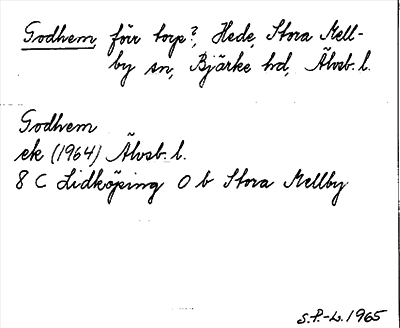 Godhem, förr torp?, Hede, Stora Mell-
by sn, Bjärke hd, Älvsb. l.
Godhem
ek (1964) Älvsb. l.
8 C Lidköping 0 b Stora Mellby
S.P.-L. 1965